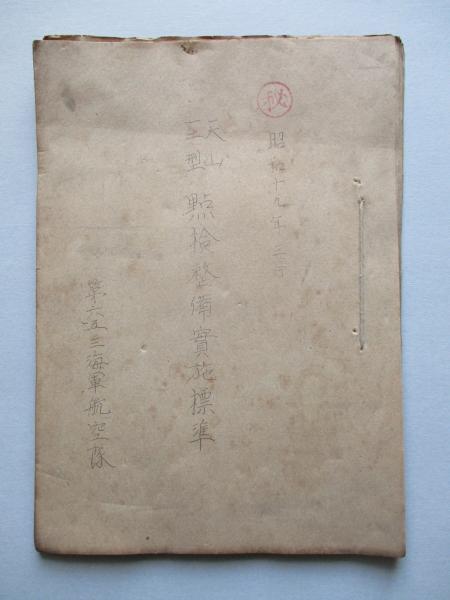 ㊙
昭和十九年 三月
天山
一二型
點檢整備實施標準
第六五三海軍航空隊